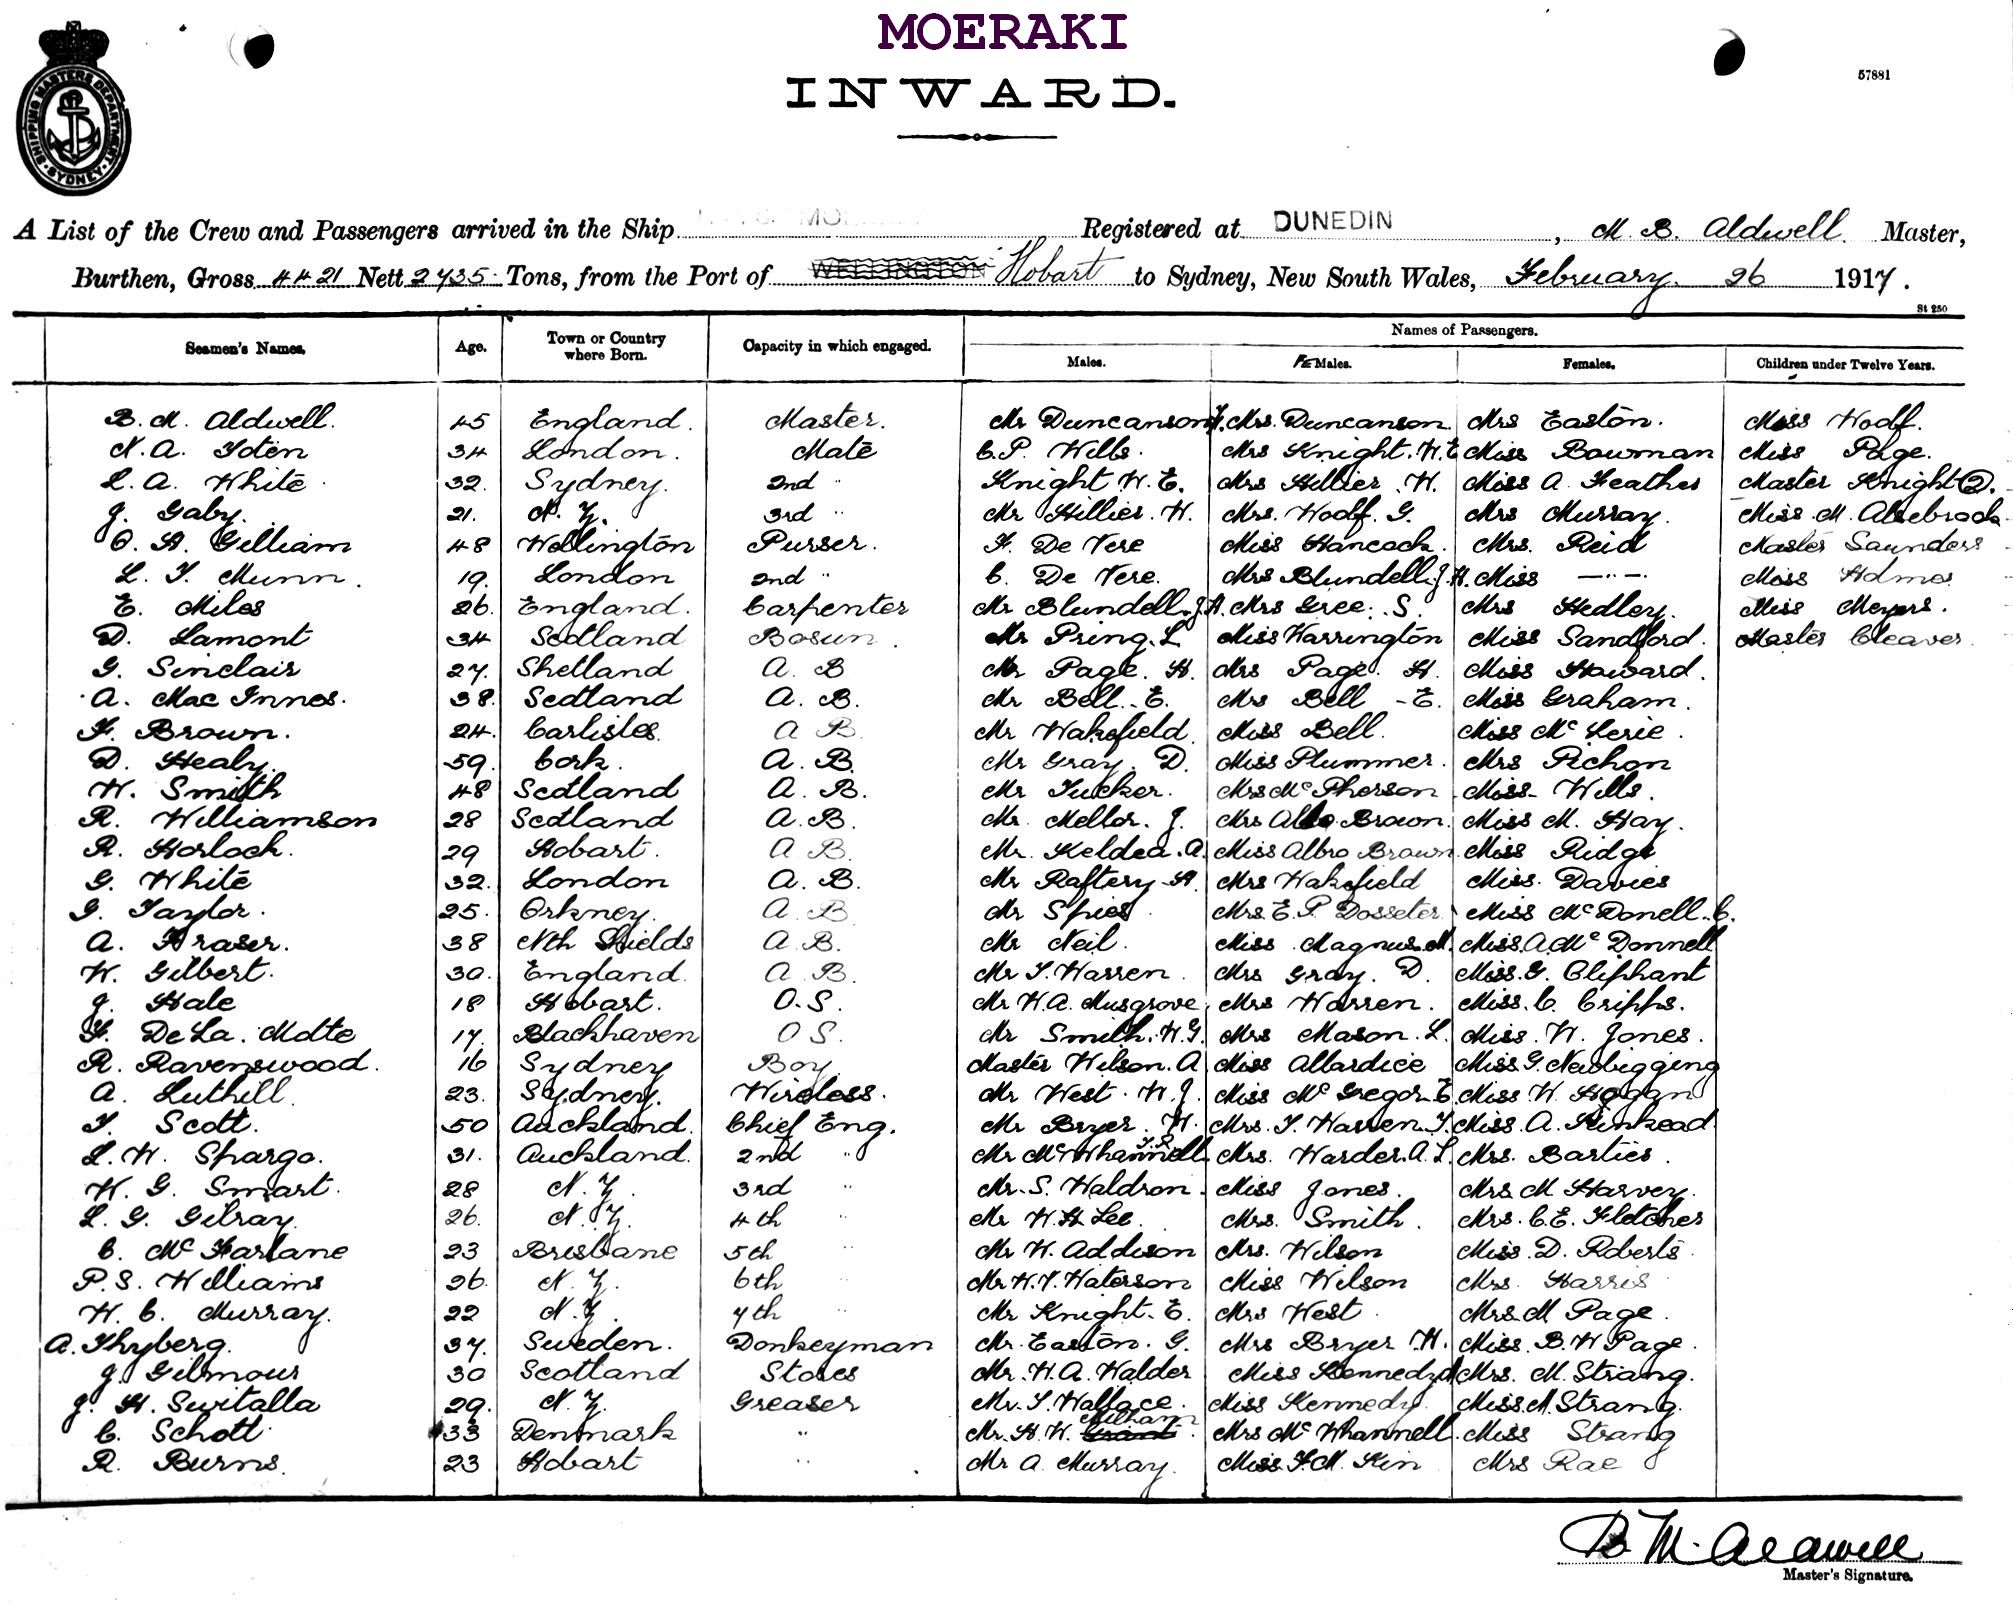 MOERAKI
INWARD.
57881
SHIPPING MASTERS DEPARTMENT SYDNEY
A List of the Crew and Passengers arrived in the Ship Registered at DUNEDIN, M. B. Aldwell. Master,
Burthen, Gross 4421 Nett 2735 Tons, from the Port of WELLINGTON Hobart to Sydney, New South Wales, February 26 1917.
St 250
Names of Passengers.
Seamen's Names. Age. Town or Country where Born. Capacity in which engaged. Males. FEMales. Females. Children under Twelve Years.
B. M. Aldwell. 45 England. Master. Mr Duncanson Mrs. Duncanson. Mrs Easton. Miss Woolf.
N. A. 34 London. Mate C. P. Wells. Mrs Knight. W. E Miss Bowman Miss Page.
L. A. White 32. Sydney. 2nd " Knight W. E. Mrs Hillier. W. Miss A. Feather Master Knight
J. Gaby. 21. N. Z. 3rd " Mr Hillier. W. Mrs. Woolf. G. Mrs Murray. Miss. M.
C. H. Gilliam 48 Wellington Purser. F. De Vere Miss Hancock. Mrs. Reid Master Saunders
L. T. Munn. 19. London 2nd " C. De Vere. Mrs Blundell. J. H. Miss —"— Miss
E. Miles 26. England. Carpenter Mr Blundell. J. H. Mrs Gree. S. Mrs Hedley. Miss Meyers.
D. Lamont 34 Scotland Bosun. Mr Pring. L Miss Warrington Miss Sandford. Master Cleaver.
G. Sinclair 27. Shetland A. B Mr Page. H. Mrs Page. H. Miss Howard.
A. Mac Innes. 38. Scotland A. B. Mr Bell. E. Mrs Bell - E. Miss Graham.
F. Brown. 24. Carlisle. A B. Mr Wakefield. Miss Bell. Miss Mc
D. Healy. 59. Cork. A. B. Mr Gray. D. Miss Plummer. Mrs Pichon
W. Smith 48 Scotland A. B. Mr Tucker. Mrs McPherson Miss Wells.
R. Williamson 28 Scotland A. B. Mr. Mellor. J. Mrs Albro Brown. Miss M. Hay.
R. Horlock. 29 Hobart. A B. Mr. A. Miss Albro Brown Miss Ridge
G. White 32. London A. B. Mr Raftery H. Mrs Wakefield Miss. Davies
G. Taylor. 25. Orkney. A B Mr Spies Mrs. E. P. Dosseter Miss McDonell. C.
A. Fraser. 38 Nth Shields A. B. Mr Neil. Miss Magnus. M. Miss. A. McDonnell
W. Gilbert. 30. England. A B. Mr T. Warren. Mrs Gray. D. Miss. G. Oliphant
J. Hale 18 Hobart. O. S. Mr W. A. Musgrove Mrs Warren. Miss. C. Cripps.
F. De La. Motte 17. Blackhaven O S. Mr Smith. W. G. Mrs Mason. L. Miss. W. Jones.
R. Ravenswood. 16 Sydney Boy. Master Wilson. A Miss Allardice Miss. G. Newbigging
A. Luthill. 23. Sydney. Wireless. Mr West. W. J. Miss McGregor. E. Miss W. Hogan
T. Scott. 50 Auckland. Chief Eng. Mr Bryer. W. Mrs. T. Warren. T. Miss. A. Kinkead
L. W. Spargo. 31. Auckland. 2nd " Mr McWhannell Mrs. Warder. A. L. Mrs.
W. G. Smart. 28 N. Z. 3rd " Mr. S. Waldron. Miss Jones. Mrs M. Harvey.
L. G. Gilray. 26. N. Z. 4th " Mr W. H Lee. Mrs. Smith. Mrs. C. E. Fletcher
C. McFarlane 23 Brisbane 5th " Mr W. Addison Mrs. Wilson Miss. D. Roberts.
P. S. Williams 26. N. Z. 6th " Mr W. T. Waterson Miss Wilson Mrs. Harris
W. C. Murray. 22 N. Z. 7th " Mr Knight. E. Mrs West. Mrs. M Page.
A. Thyberg. 37. Sweden. Donkeyman Mr. Easton. G. Mrs Bryer W. Miss. B. W Page.
J. Gilmour 30 Scotland Stores Mr. W. A. Walder Miss Kennedy Mrs. M. Strang.
J. H. Switalla 29. N. Z. Greaser Mr. T. Wallace. Miss Kennedy. Miss. M. Strang.
C. Schott 33 Denmark " Mr. H. W. Milham Mrs McWhannell. Miss Strang
R. Burns. 23 Hobart " Mr A. Murray. Miss. F. M. Kin Mrs Rae
B. M. Aldwell
Master's Signature.